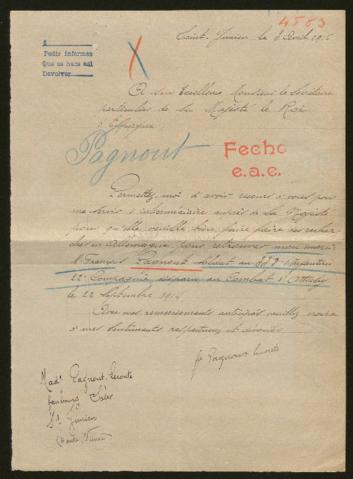 4583
Saint-Junien le 8 Avril 1915
A
Pedir informes
Que se hace aci
Devolver
A Son Excellence Monsieur le Secrétaire
particulier de Sa Majesté le Roi
d'Espagne
Pagnout
Fecho
e.a.c.
Permettez-moi d'avoir recours à vous pour
me servir d'intermédiaire auprès de Sa Majesté
pour qu'elle veuille bien faire faire des recher
ches en Allemagne pour retrouver mon mari
M. François Pagnout soldat au d'infanterie
22e Compagnie disparu au Combat d'
le 22 Septembre 1914
Avec mes remerciements anticipés veuillez croire
à mes sentiments respectueux et dévoués
Pagnout
Made Pagnout
faubourg
St Junien
(Haute Vienne)